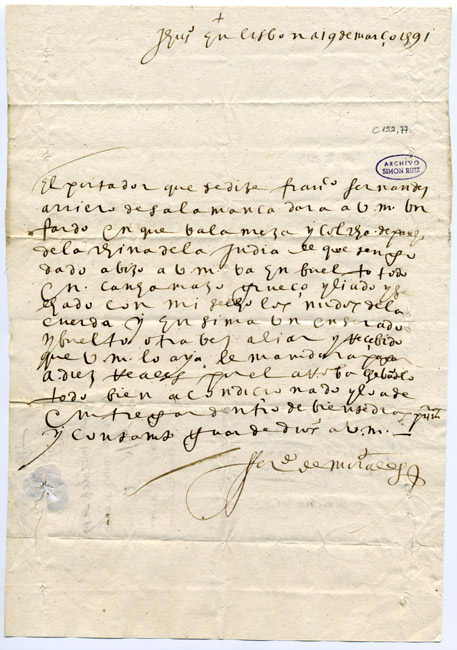 +
Jhus En lisbona 19 de março 1591
C 152, 77
ARCHIVO
SIMON RUIZ
El portador que se dise franco fernandes
arriero de salamanca dara a v m vn
fardo En que va la meza y colcha de
de la china de la yndia de que tengo
dado abizo a v m va Enbuelto todo
En cangamazo grueço y liado y se
llado con mi sello los nudos de la
cuerda y En sima vn Enserado
y buelto otra vez a liar y Recebido
que v m lo aya le mandara pagar
a dies Reales por el arroba
todo bien acondicionado y lo a de
Entregar dentro de
y con tanto guarde dios a v m
fer do de morales